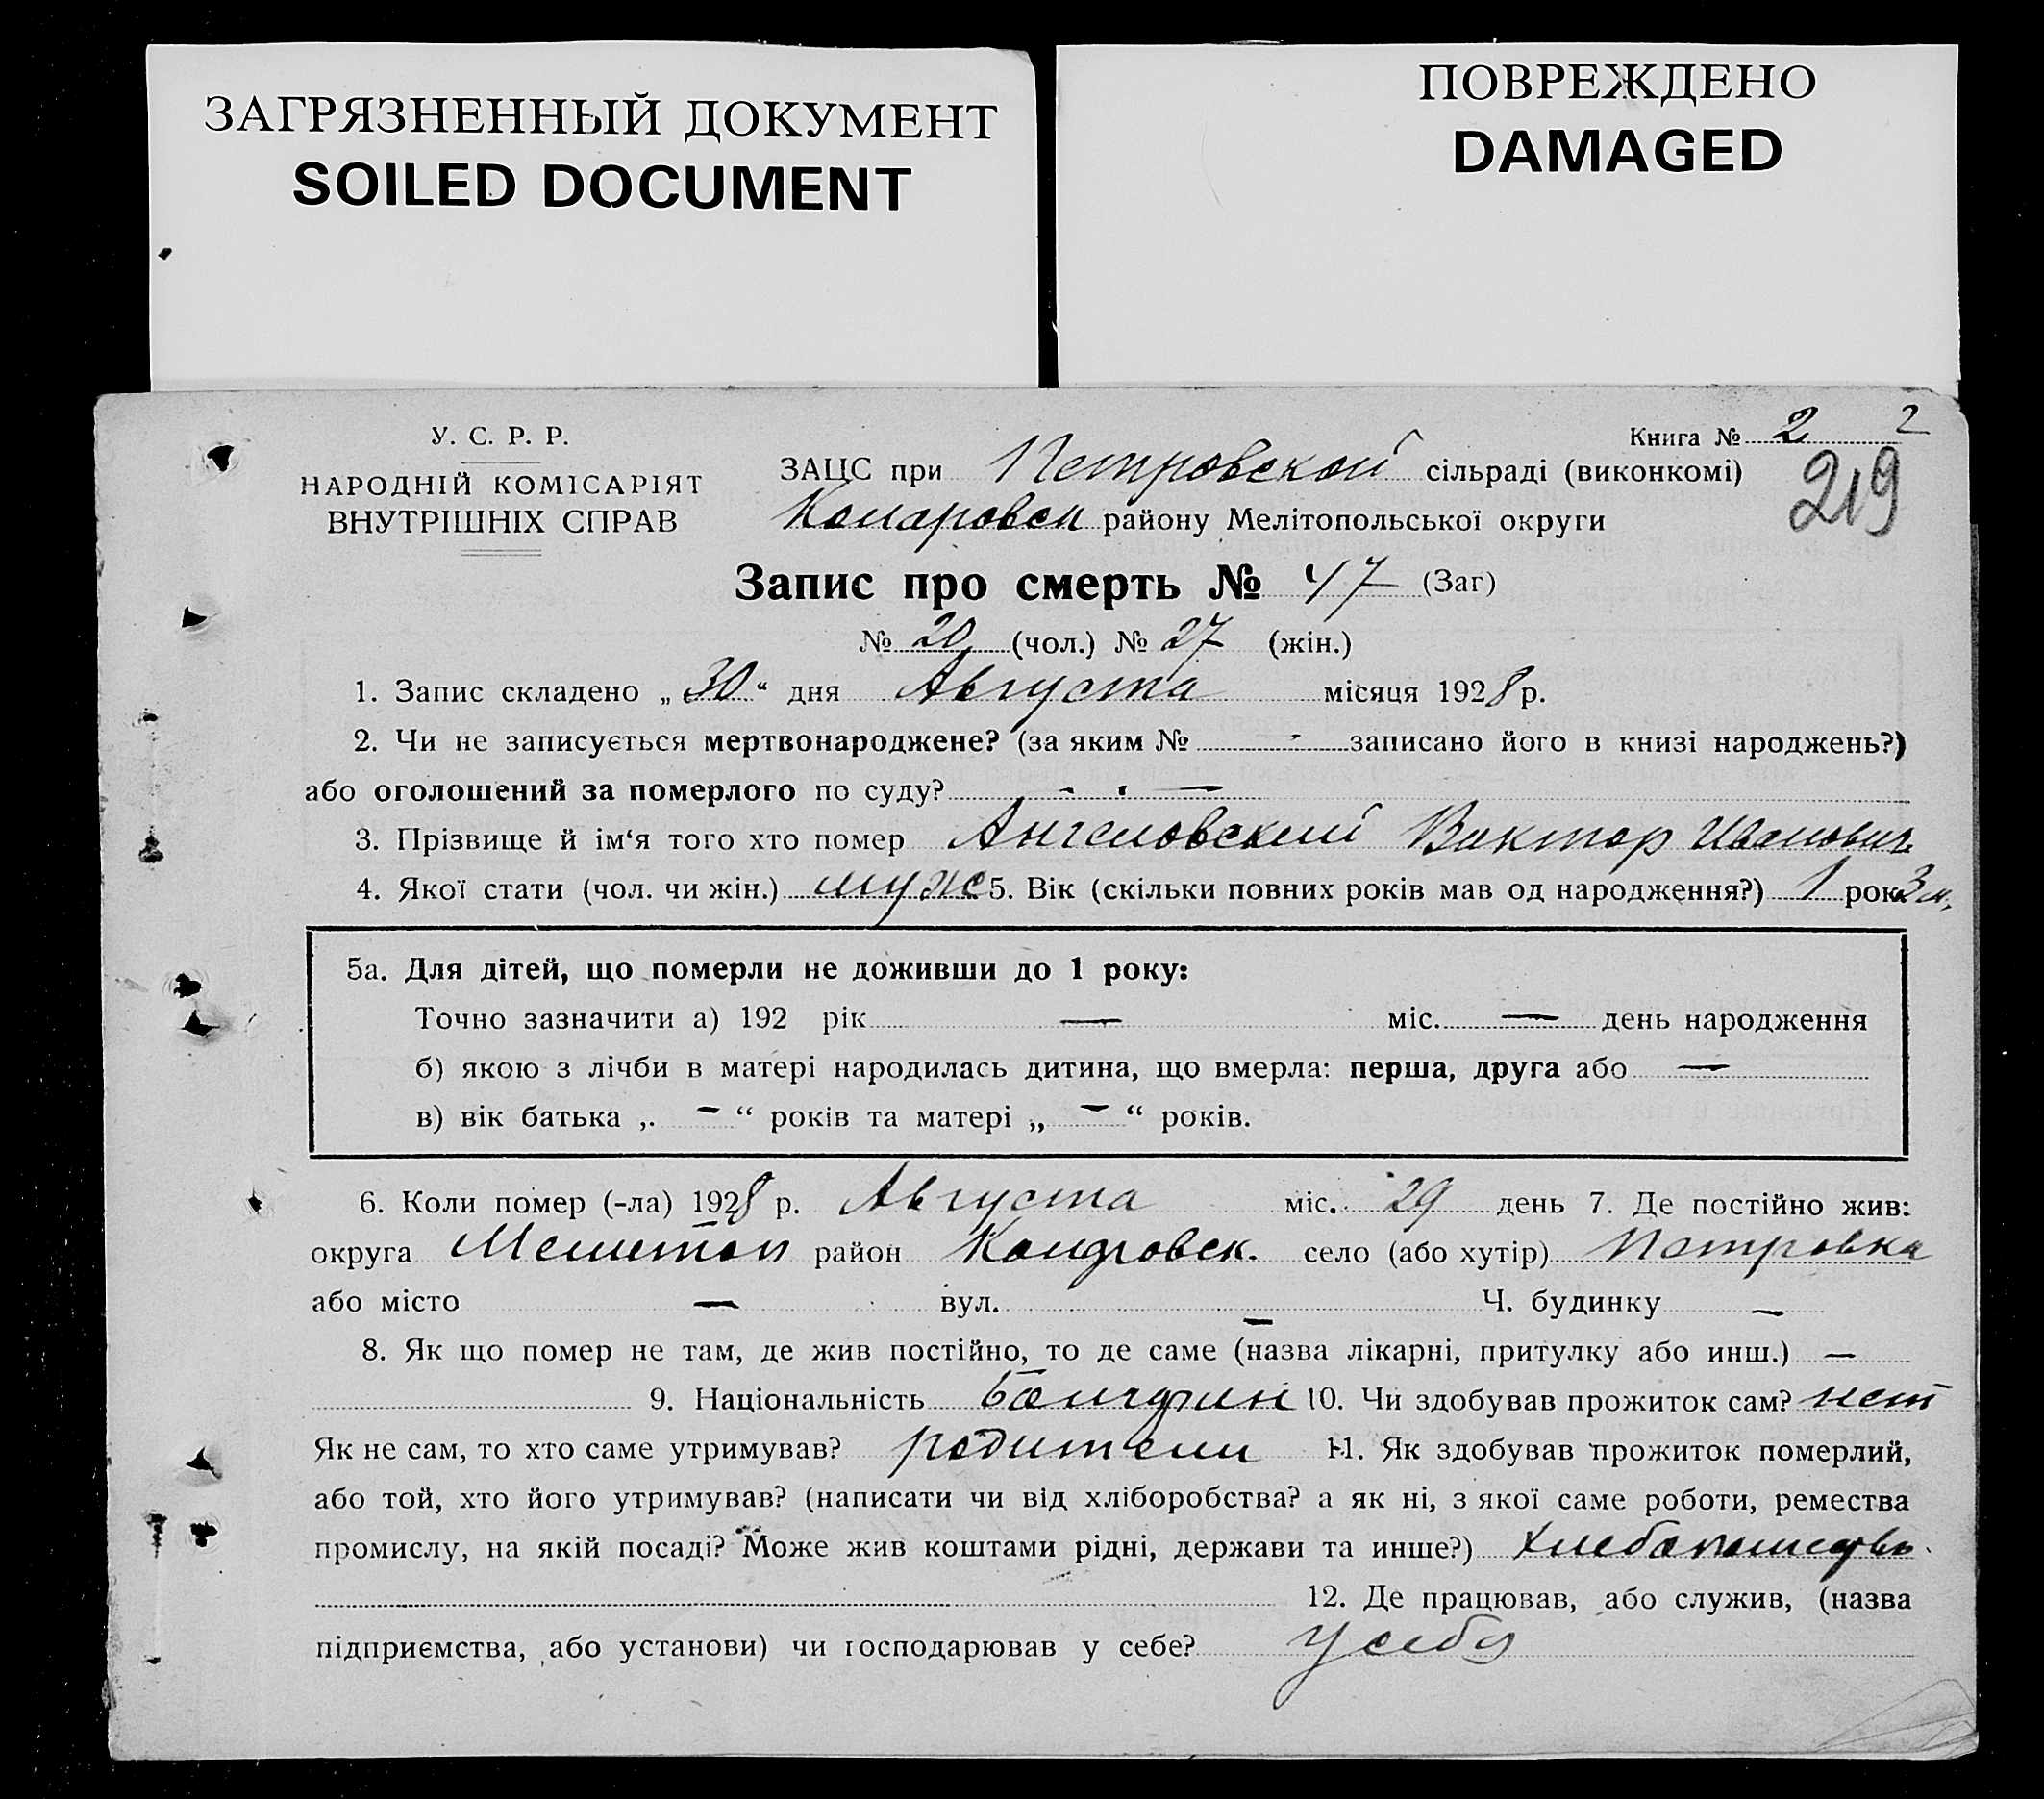 ЗАГРЯЗНЕННЫЙ ДОКУМЕНТ
SOILED DOCUMENT
ПОВРЕЖДЕНО
DAMAGED
У. С. Р. Р.
НАРОДНІЙ КОМІСАРІЯТ
ВНУТРІШНІХ СПРАВ
Книга № 2 2
ЗАЦС при Петровской сільраді (виконкомі)
219
района Мелітопольської округи
Запис про смерть № 47 (Заг)
№ 20 (чол.) № 27 (жін.)
1. Запис складено „ 30 “ дня Августа місяця 1928 р.
2. Чи не записується мертвонароджене? (за яким № - записано його в книзі народжень?)
або оголошений за померлого по суду? - . —
3. Прізвище й ім‘я того хто помер Ангеловский Виктор Иванович
4. Якої стати (чол. чи жін.) муж 5. Вік (скільки повних років мав од народження?) 1 рок 3 м.
5а. Для дітей, що померли не доживши до 1 року:
Точно зазначити а) 192 рік — міс. — день народження
б) якою з лічби в матері народилась дитина, що вмерла: перша, друга або —
в) вік батька „ — “ років та матері „ — “ років.
6. Коли помер (-ла) 1928 р. Августа міс. 29 день 7. Де постійно жив:
округа Мелитоп район село (або хутір) Петровка
або місто — вул. — Ч. будинку —
8. Як що помер не там, де жив постійно, то де саме (назва лікарні, притулку або инш.) —
9. Національність Болгарин 10. Чи здобував прожиток сам? нет
Як не сам, то хто саме утримував? родители 11. Як здобував прожиток померлий,
або той, хто його утримував? (написати чи від хліборобства? а як ні, з якої саме роботи, ремества
промислу, на якій посаді? Може жив коштами рідні, держави та инше?)
12. Де працював, або служив, (назва
підприємства, або установи) чи господарював у себе? У себя